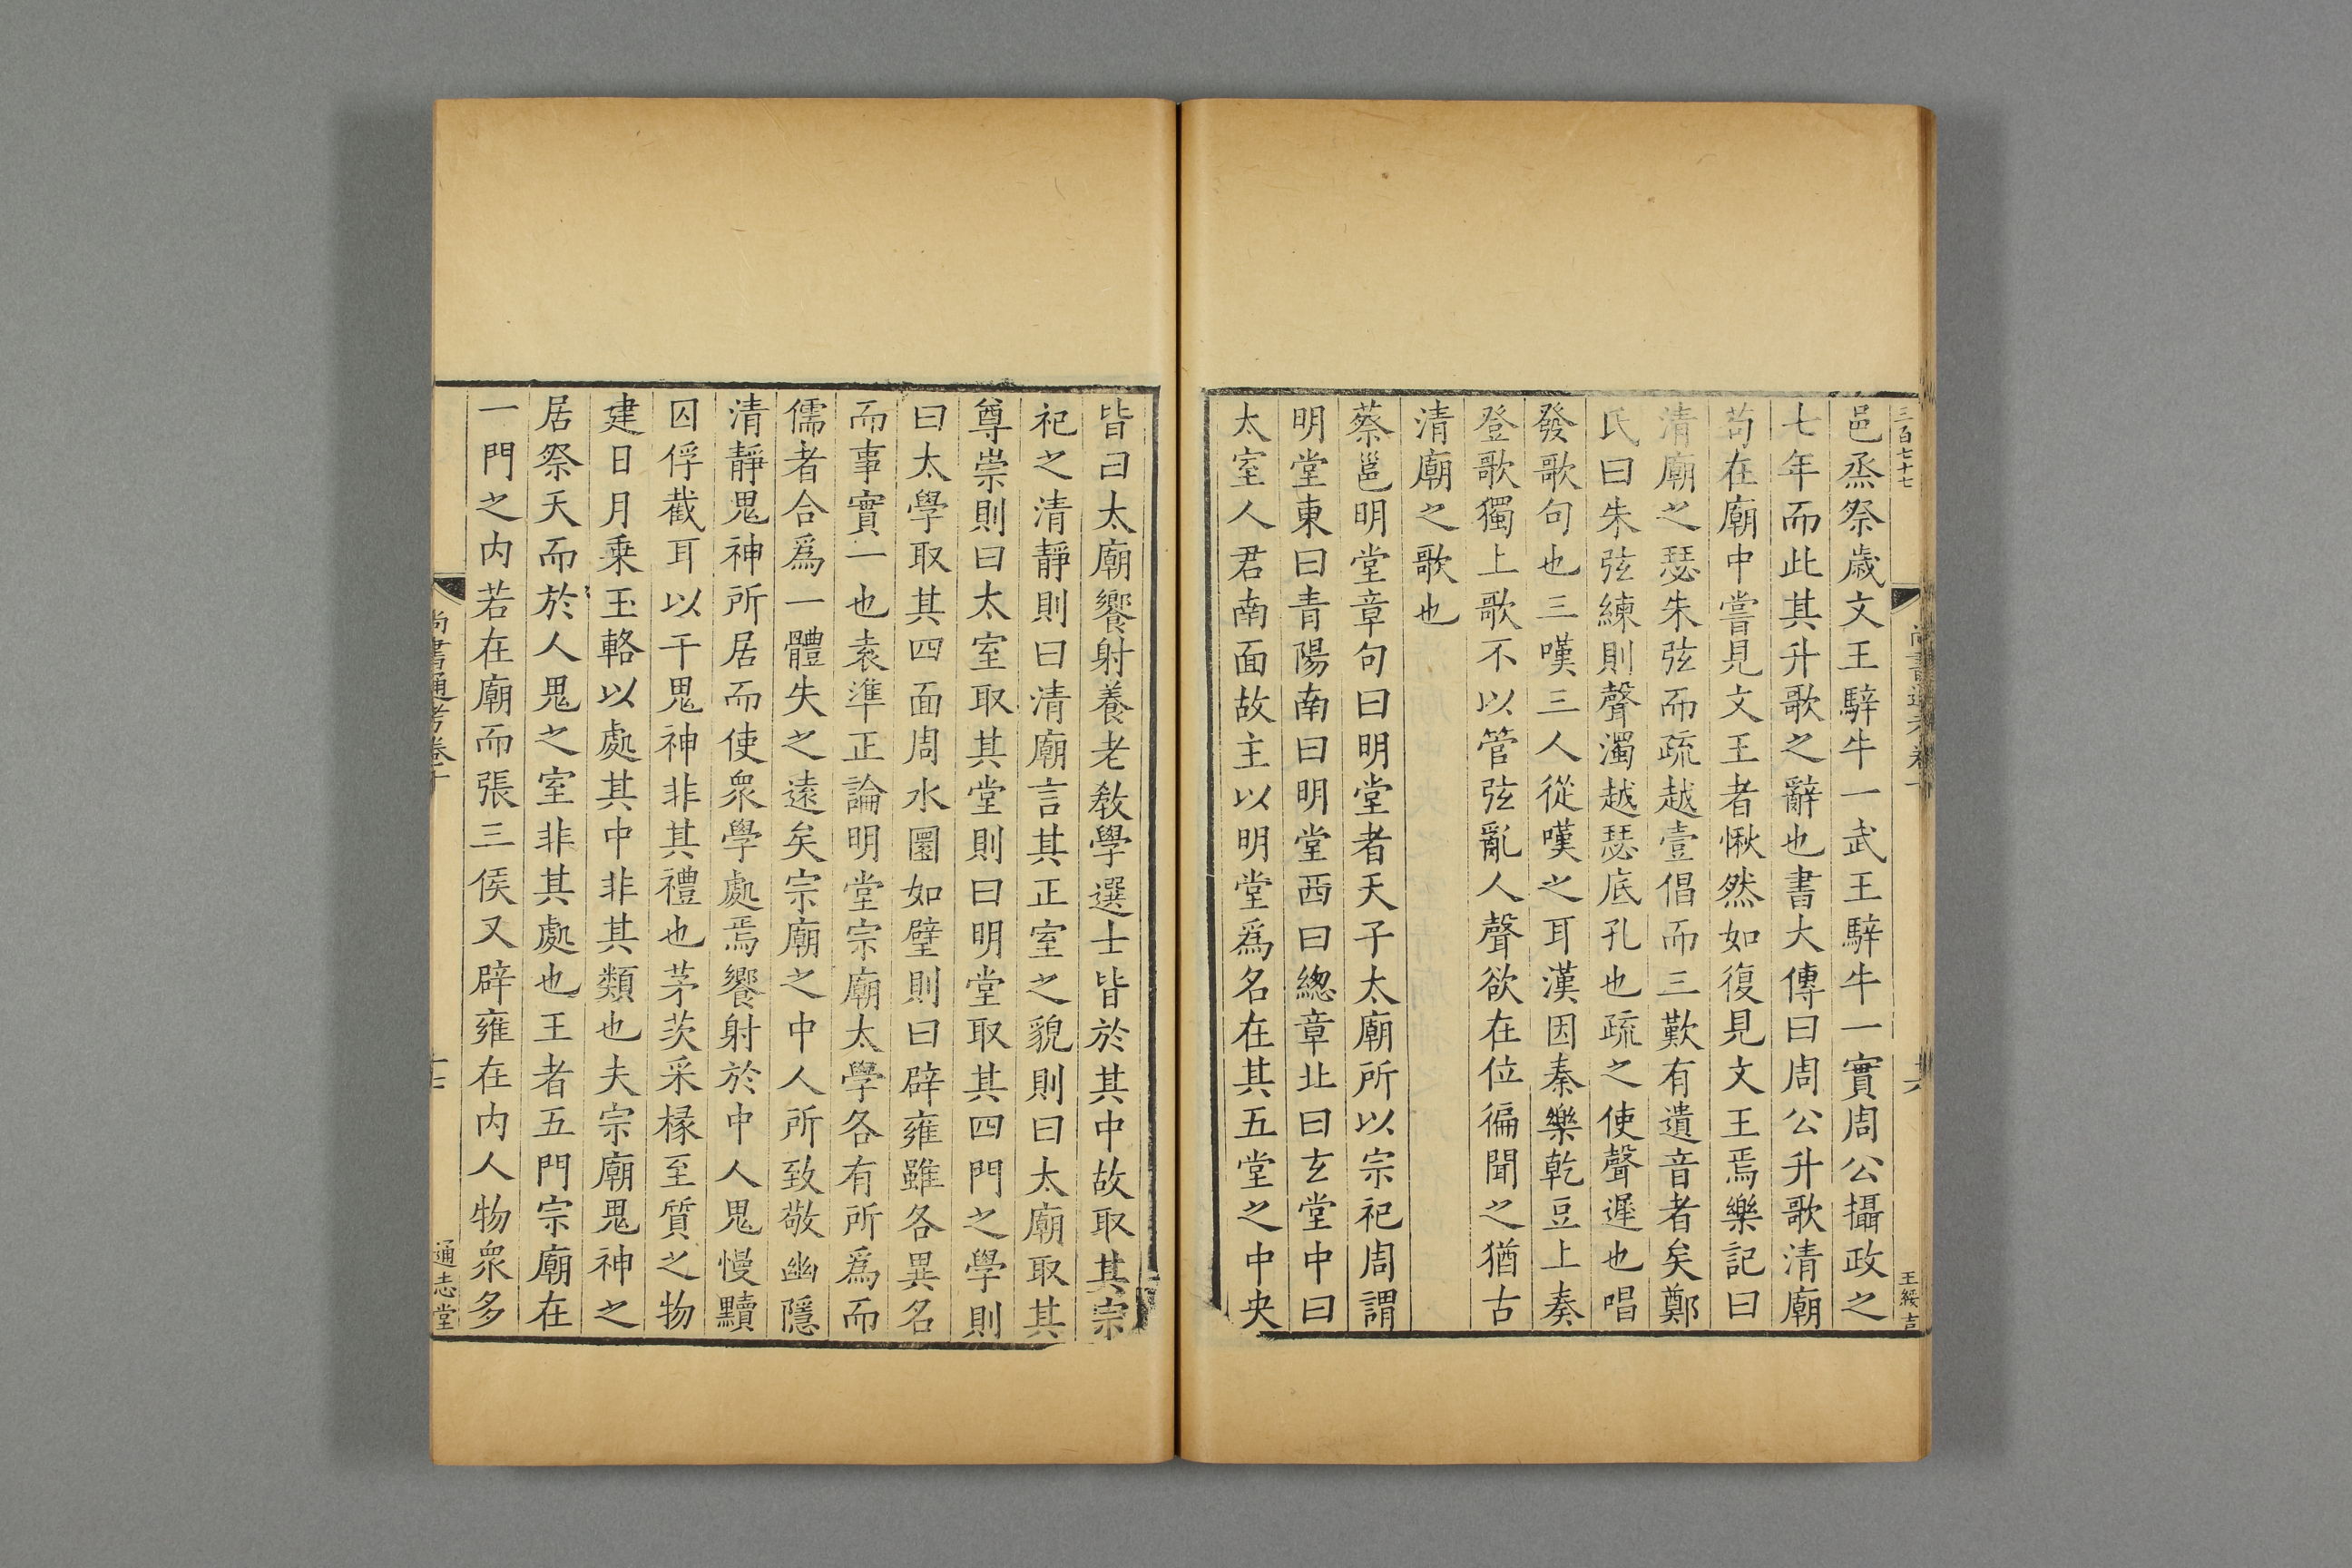 三百七十七
尚書通考卷十
十六
王綏吉
邑烝祭歲文王騂牛一武王騂牛一實周公攝政之
七年而此其升歌之辭也書大傳曰周公升歌清廟
苟在廟中嘗見文王者愀然如復見文王焉樂記曰
清廟之瑟朱弦而疏越壹倡而三歎有遺音者矣鄭
氏曰朱弦練則聲濁越瑟底孔也疏之使聲遲也唱
發歌句也三嘆三人從嘆之耳漢因秦樂乾豆上奏
登歌獨上歌不以管弦亂人聲欲在位徧聞之猶古
清廟之歌也
蔡邕明堂章句曰明堂者天子太廟所以宗祀周謂
明堂東曰青陽南曰明堂西曰總章北曰玄堂中曰
太室人君南面故主以明堂爲名在其五堂之中央
皆曰太廟饗射養老敎學選士皆於其中故取其宗
祀之清靜則曰清廟言其正室之貌則曰太廟取其
尊崇則曰太室取其堂則曰明堂取其四門之學則
曰太學取其四面周水圜如璧則曰辟雍雖各異名
而事實一也袁準正論明堂宗廟太學各有所爲而
儒者合爲一體失之遠矣宗廟之中人所致敬幽隱
清靜鬼神所居而使衆學處焉饗射於中人鬼慢黷
囚俘截耳以干鬼神非其禮也茅茨采椽至質之物
建日月乘玉輅以處其中非其類也夫宗廟鬼神之
居祭天而於人鬼之室非其處也王者五門宗廟在
一門之內若在廟而張三侯又辟雍在內人物衆多
尚書通考卷十
十七
通志堂